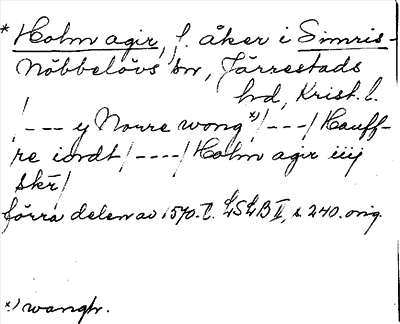 * Holm agir, f. åker i Simris-
Nöbbelövs sn, Järrestads
hd, Krist. l.
/--- y Norre wong *)/---/ Hauff-
re iordt/----/ Holm agir iiij
skr/
förra delen av 1570-t. LSLB II, s. 240. orig.
*) wangh.